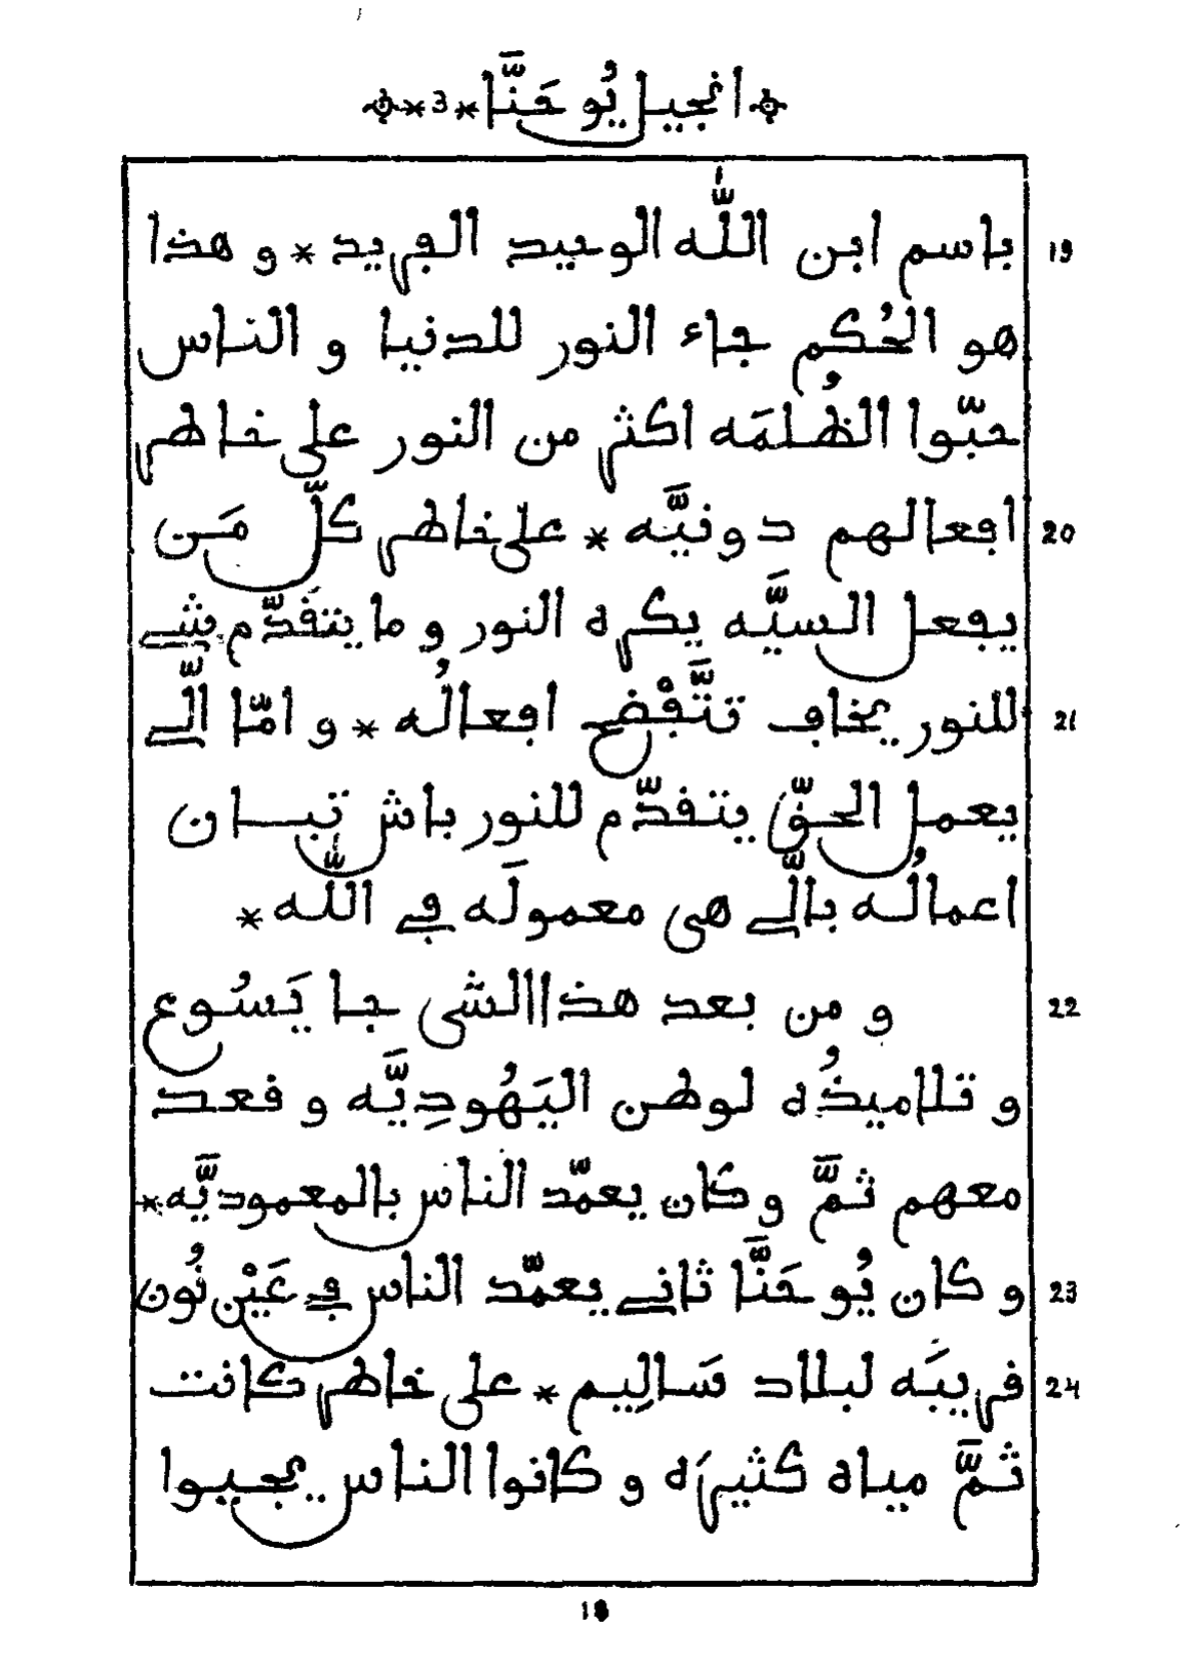 انجيل يُوحَنَّا * 3 *
باسم ابن اللّٰه الوحيد الڢريد * و هذا 19
هو الحُكم جاء النور للدنيا و الناس
حبّوا الظُلمَه اكثر من النور على خاطر
اڢعالهم دونيَّه * على خاطر كلّ مَن 20
يڢعل السيَّه يكره النور و ما يتڧدّم شے
للنور يخاڢ تتَّڢْضح اڢعالُه * و امّا الّے 21
يعمل الحقّ يتڧدّم للنور باش تبان
اعمالُه بالّے هى معمولَه ڢے اللّٰه *
و من بعد هذا الشى جا يَسُوع 22
و تلاميذُه لوطن اليَهُودِيَّه و ڧعد
معهم ثمَّ وكان يعمّد الناس بالمعموديَّه *
و كان يُوحَنَّا ثانے يعمّد الناس ڢے عَيْن نُون 23
ڧريبَه لبلاد سَالِيم * على خاطر كانت 24
ثمَّ مياه كثيرَه و كانوا الناس يجيوا
18